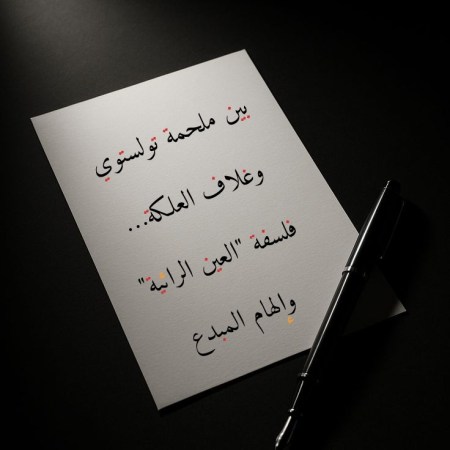 بين ملحمة تولستوي
وغلاف العلكة...
فلسفة "العين الرائية"
وإلهام المبدع